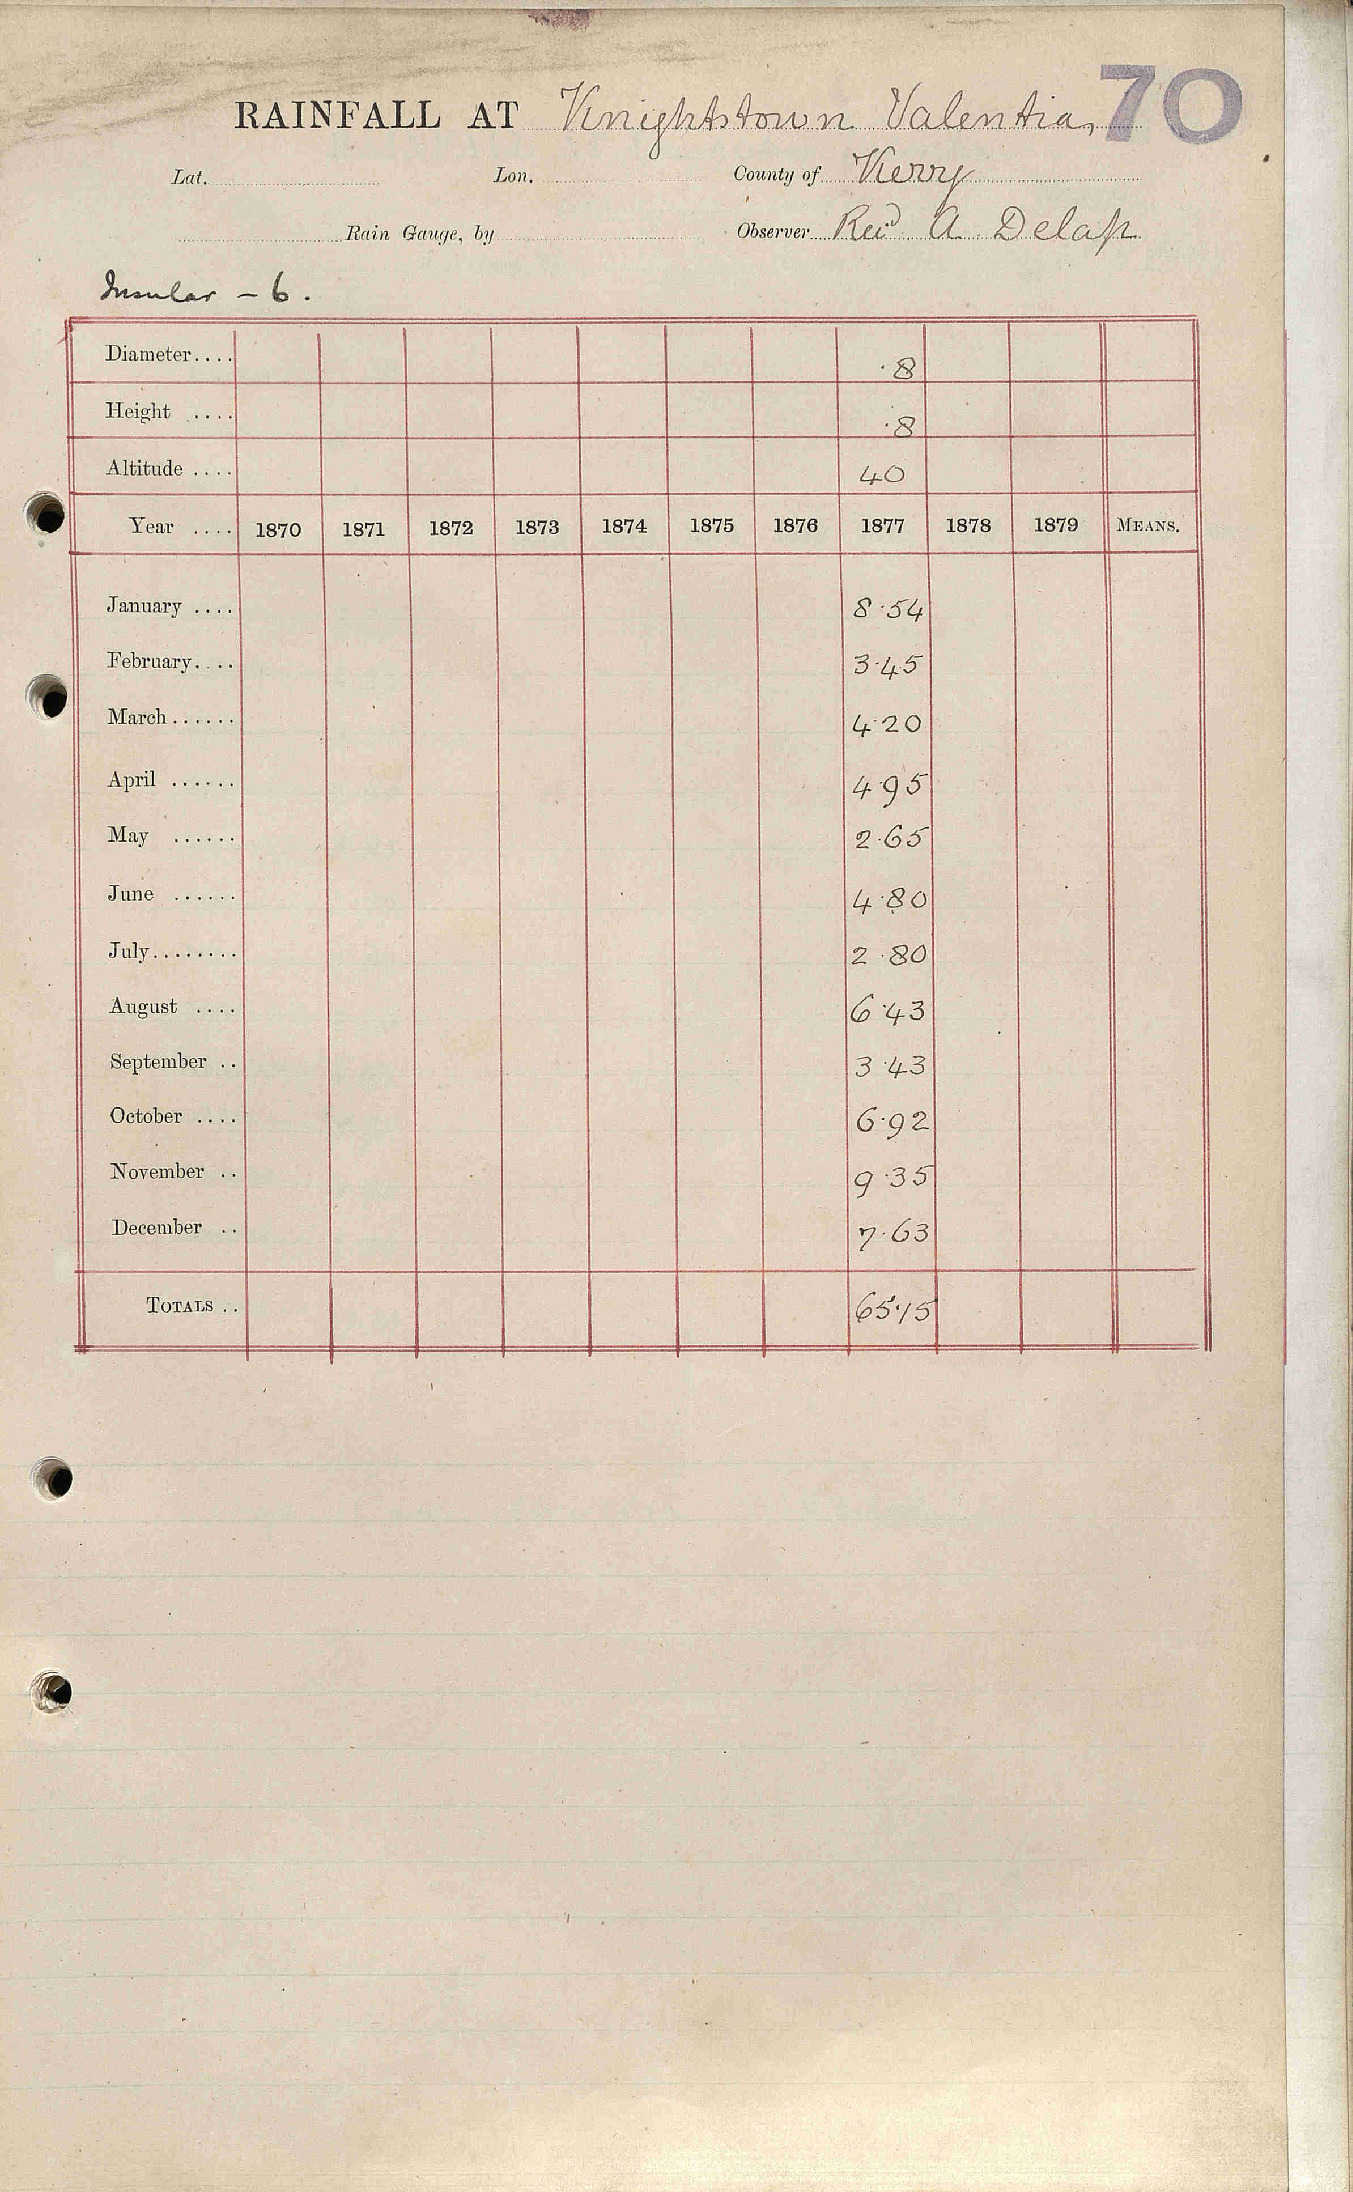 70
RAINFALL AT Knightstown Valentia,
Lat. Lon. County of Kerry
Rain Gauge, by Observer Revd A Delap
Insular - 6.
Diameter.... ·8
Height .... ·8
Altitude .... 40
Year .... 1870 1871 1872 1873 1874 1875 1876 1877 1878 1879 MEANS.
January .... 8·54
February.... 3·45
March...... 4·20
April ...... 4·95
May ...... 2·65
June ...... 4·80
July........ 2·80
August .... 6·43
September .. 3·43
October .... 6·92
November .. 9·35
December .. 7·63
TOTALS .. 65·15